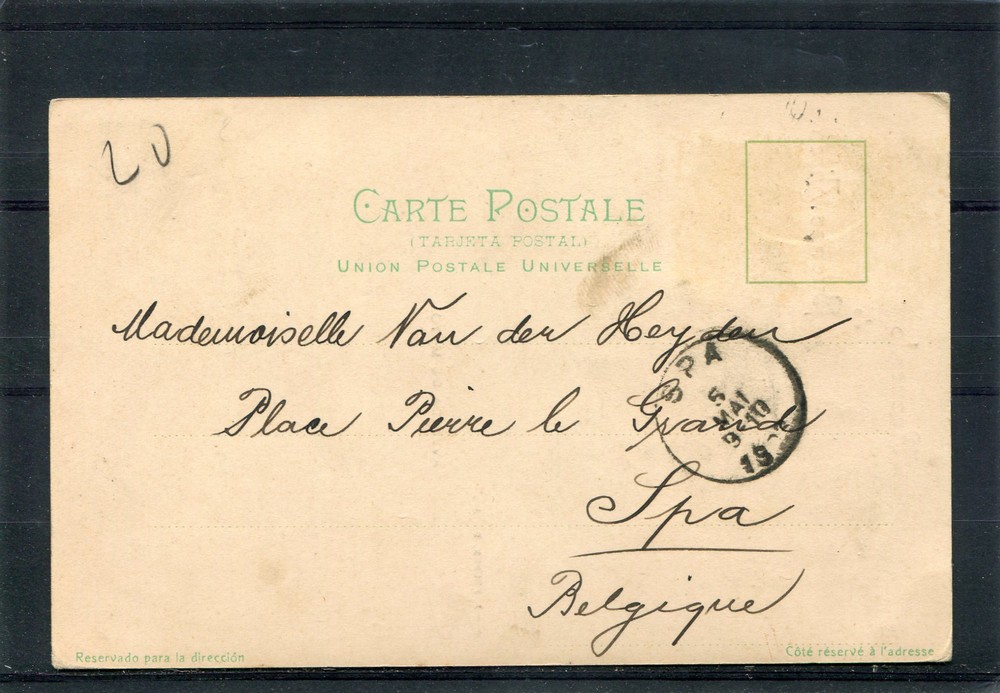 20
CARTE POSTALE
(TARJETA POSTAL)
UNION POSTALE UNIVERSELLE
Mademoiselle Van der Heyden
Place Pierre le Grand
Spa
Belgique
SPA
5
MAI
9-10
Reservado para la dirección
Côté réservé à l'adresse